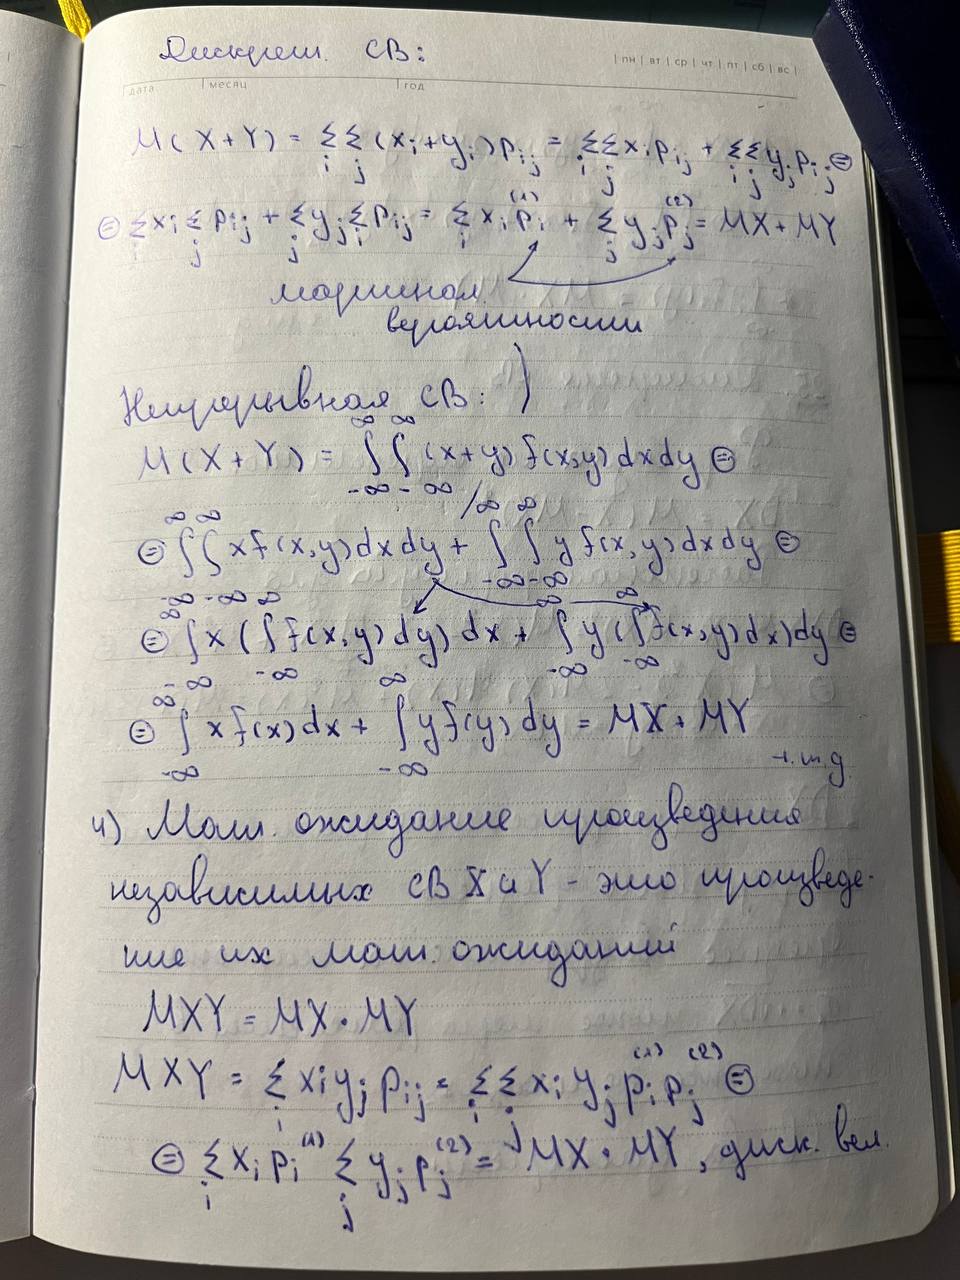 Дискретн. СВ:
| пн | вт | ср | чт | пт | сб | вс |
дата | месяц | год
M(X+Y) = Σ_i Σ_j (x_i+y_j)p_ij = Σ_i Σ_j x_i p_ij + Σ_i Σ_j y_j p_ij ⊜
⊜ Σ_i x_i Σ_j p_ij + Σ_j y_j Σ_i p_ij = Σ_i x_i p_i^(1) + Σ_j y_j p_j^(2) = MX + MY
маргинал.
вероятности
Непрерывная СВ:
M(X+Y) = ∫_{-∞}^{∞} ∫_{-∞}^{∞} (x+y) f(x,y) dx dy ⊜
⊜ ∫_{-∞}^{∞} ∫_{-∞}^{∞} x f(x,y) dx dy + ∫_{-∞}^{∞} ∫_{-∞}^{∞} y f(x,y) dx dy ⊜
⊜ ∫_{-∞}^{∞} x (∫_{-∞}^{∞} f(x,y) dy) dx + ∫_{-∞}^{∞} y (∫_{-∞}^{∞} f(x,y) dx) dy ⊜
⊜ ∫_{-∞}^{∞} x f(x) dx + ∫_{-∞}^{∞} y f(y) dy = MX + MY
ч.т.д
4) Мат. ожидание произведения
независимых СВ X и Y - это произведе-
ние их мат. ожиданий
MXY = MX · MY
MXY = Σ_i x_i y_j p_ij = Σ_i Σ_j x_i y_j p_i^(1) p_j^(2) ⊜
⊜ Σ_i x_i p_i^(1) Σ_j y_j p_j^(2) = MX · MY, диск. вел.